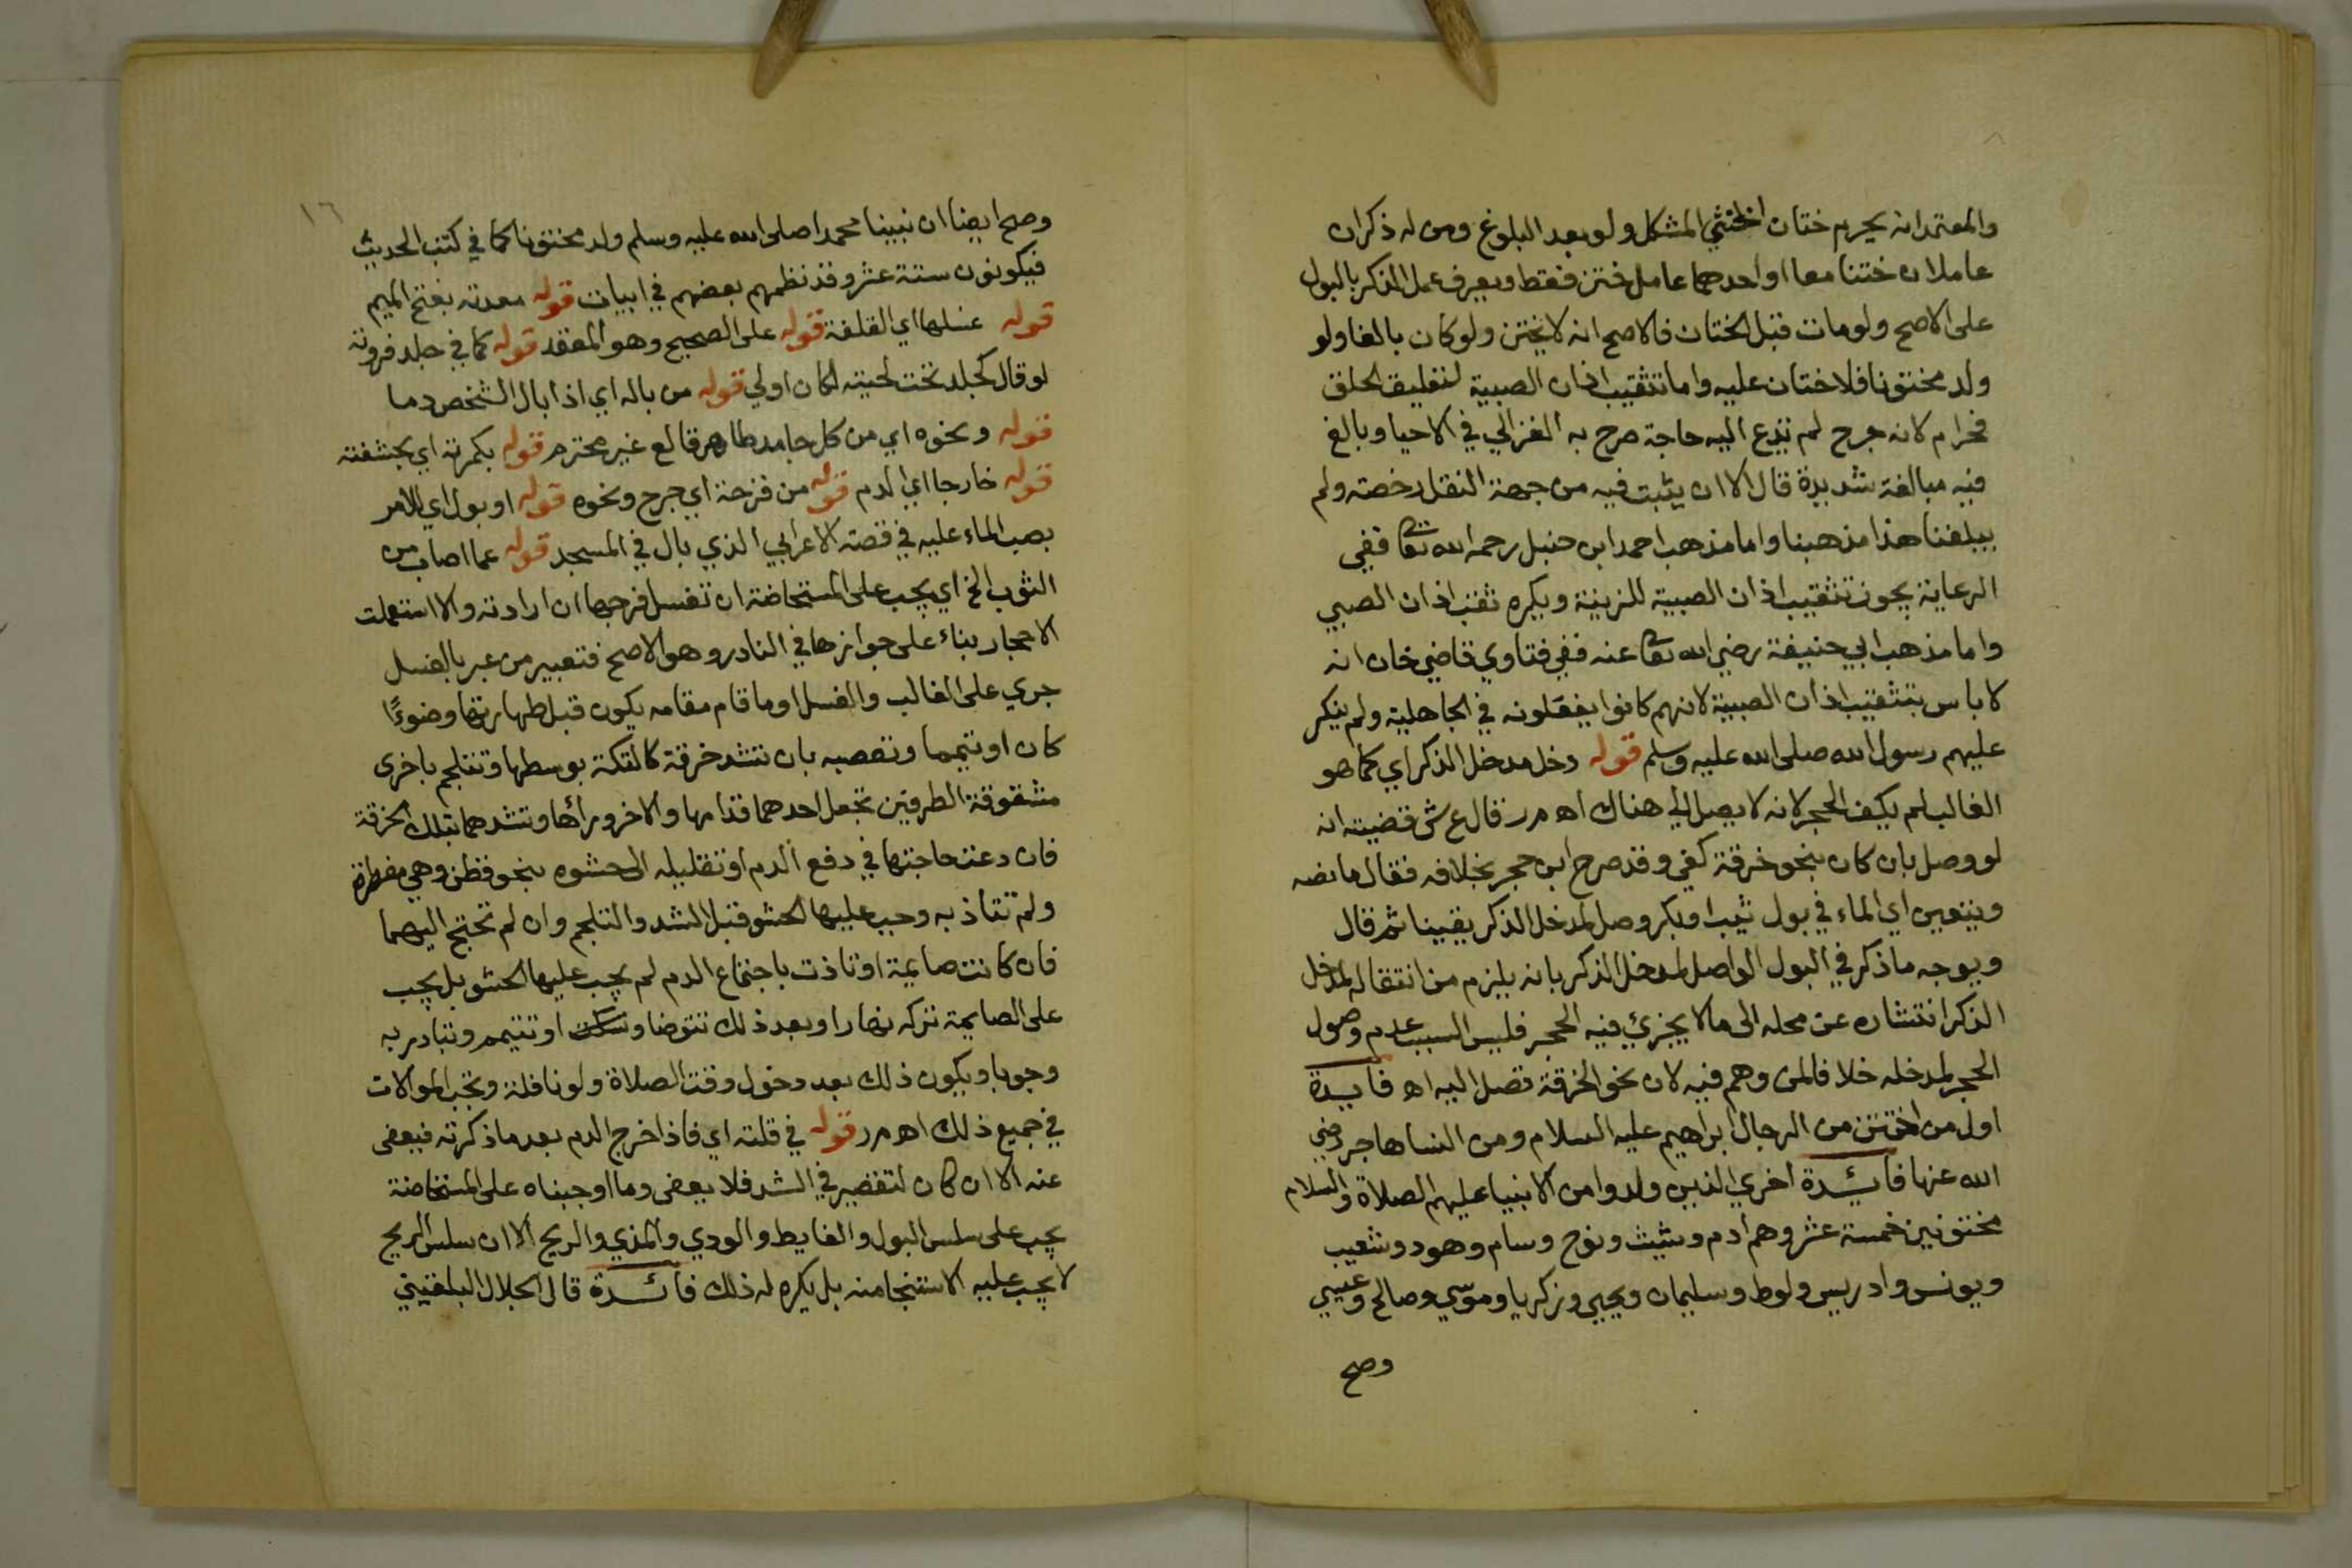 والمعتمد انه يحرم ختان الخنثي المشكل ولو بعد البلوغ ومن له ذكران
عاملان ختنا معا او احدهما عامل ختن فقط ويعرف عمل الذكر بالبول
على الاصح ولو مات قبل الختان فالاصح انه لا يختن ولو كان بالغا ولو
ولد مختونا فلا ختان عليه واما تثقيب اذان الصبية لتعليق الحلق
فحرام لانه جرح لم تدع اليه حاجة صرح به الغزالي في الاحيا وبالغ
فيه مبالغة شديدة قال الا ان يثبت فيه من جهة النقل رخصة ولم
يبلغنا هذا مذهبنا واما مذهب احمد ابن حنبل رحمه الله تعالى ففي
الرعاية يجوز تثقيب اذان الصبية للزينة ويكره ثقب اذان الصبي
واما مذهب ابي حنيفة رضي الله تعالى عنه ففي فتاوي قاضي خان انه
لا باس بتثقيب اذان الصبية لانهم كانوا يفعلونه في الجاهلية ولم ينكر
عليهم رسول الله صلى الله عليه وسلم قوله دخل مدخل الذكر اي كما هو
الغالب لم يكف الحجر لانه لا يصل الي هناك اه م ر قال ع ش قضيته انه
لو وصل بان كان بنحو خرقة كفي وقد صرح ابن حجر بخلافه فقال ما نصه
ويتعين اي الماء في بول ثيب او بكر وصل لمدخل الذكر يقينا ثم قال
ويوجه ما ذكر في البول الواصل لمدخل الذكر بانه يلزم من انتقاله لمدخل
الذكر انتشاره عن محله الى ما لا يجزئ فيه الحجر فليس السبب عدم وصول
الحجر لمدخله خلا فالمن وهم فيه لان نحو الخرقة تصل اليه اه فايدة
اول من اختتن من الرجال ابراهيم عليه السلام ومن النسا هاجر رضي
الله عنها فائدة اخري الذين ولدوا من الانبيا عليهم الصلاة والسلام
مختونين خمسة عشر وهم ادم وشيث ونوح وسام وهود وشعيب
ويونس وادريس ولوط وسليمان ويحيي وزكريا وموسي وصالح وعيسي
وصح
١٦
وصح ايضا ان نبينا محمدا صلى الله عليه وسلم ولد مختونا كما في كتب الحديث
فيكونون ستة عشر وقد نظمهم بعضهم في ابيات قوله معدته بفتح الميم
قوله غسلها اي القلفة قوله على الصحيح وهو المعتمد قوله كما في جلد فروته
لو قال كجلد تحت لحيته لكان اولي قوله من باله اي اذا بال الشخص دما
قوله ونحوه اي من كل جامد طاهر قالع غير محترم قوله بكمرته اي بحشفته
قوله خارجا اي الدم قوله من قرحة اي جرح ونحوه قوله او بول اي للامر
بصب الماء عليه في قصة الاعرابي الذي بال في المسجد قوله عما اصاب من
الثوب الخ اي يجب على المستحاضة ان تغسل فرجها ان ارادته والا استعملت
الاحجار بناء على جوازها في النادر وهو الاصح فتعبير من عبر بالغسل
جري على الغالب والغسل او ما قام مقامه يكون قبل طهارتها وضوءًا
كان او تيمما وتعصبه بان تشد خرقة كالتكة بوسطها وتتلجم باخرى
مشقوقة الطرفين تجعل احدهما قدامها والاخر وراءها وتشدهما بتلك الخرقة
فان دعت حاجتها في دفع الدم او تقليله الى حشوه بنحو قطن وهي مفطرة
ولم تتاذ به وجب عليها الحشو قبل الشد والتلجم وان لم تحتج اليهما
فان كانت صايمة او تاذت باجتماع الدم لم يجب عليها الحشو بل يجب
على الصايمة تركه نهارا وبعد ذلك تتوضا او تتيمم وتبادر به
وجوبا ويكون ذلك بعد دخول وقت الصلاة ولو نافلة وتجب الموالات
في جميع ذلك اه م ر قوله في قلته اي فاذا خرج الدم بعد ما ذكرته فيعفى
عنه الا ان كان لتقصير في الشد فلا يعفى وما اوجبناه على المستحاضة
يجب على سلس البول والغايط والودي والمذي والريح الا ان سلس الريح
لا يجب عليه الاستنجا منه بل يكره له ذلك فائدة قال الجلال البلقيني